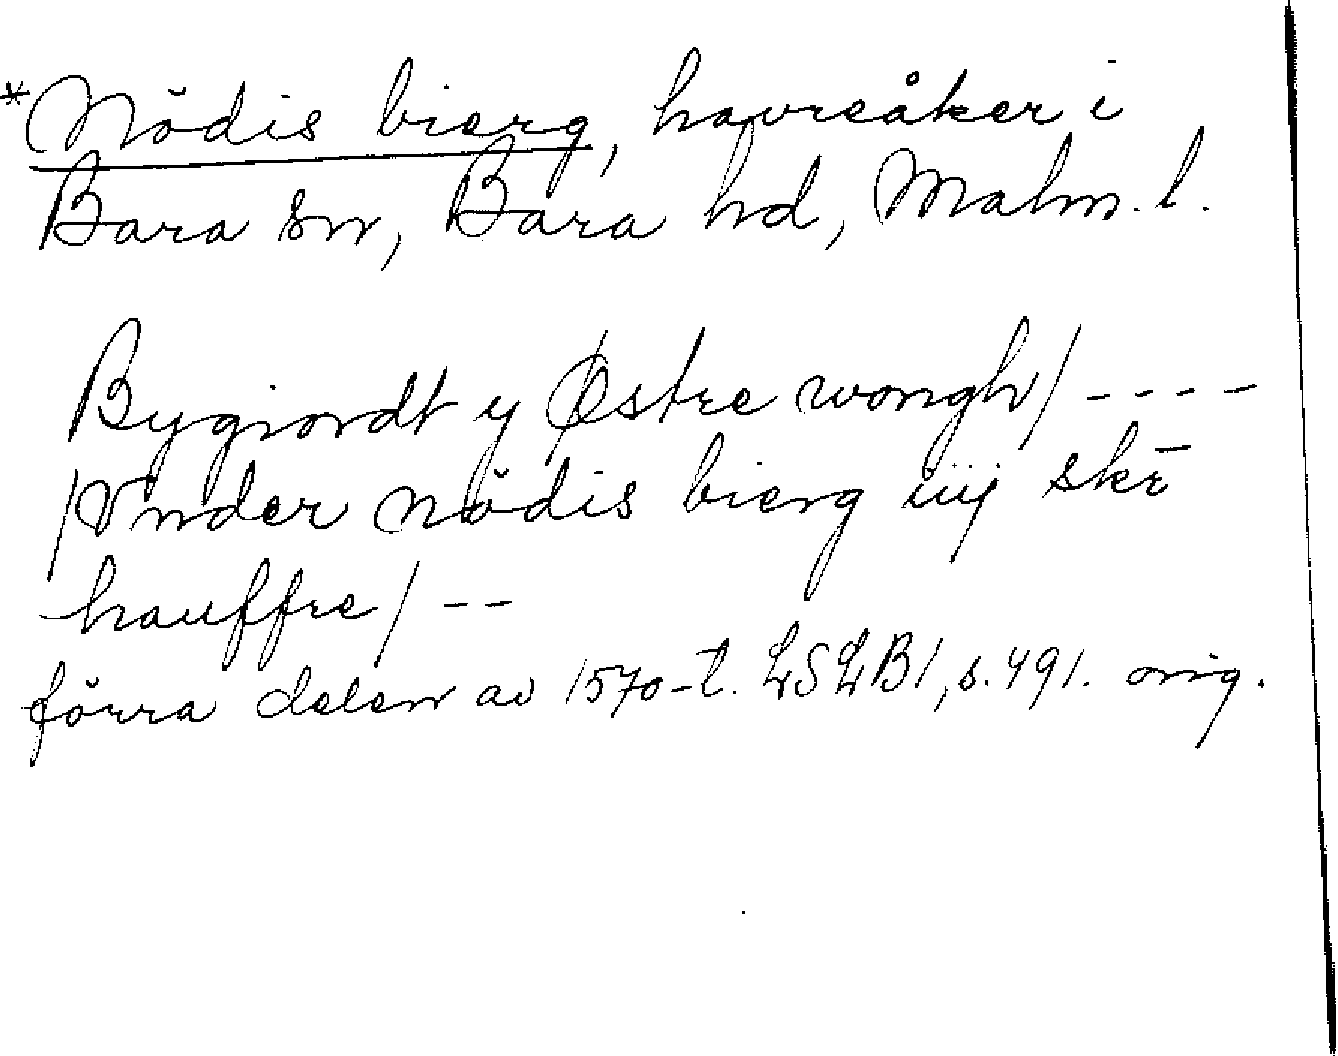 *Nödis bierg, havreåker i
Bara sn, Bara hd, Malm. l.
Bygiordt y Østre wongh/ - - - -
/Vnder nödis bierg iiij skē
hauffre/ - -
förra delen av 1570-t. LSLB1, s. 491. orig.